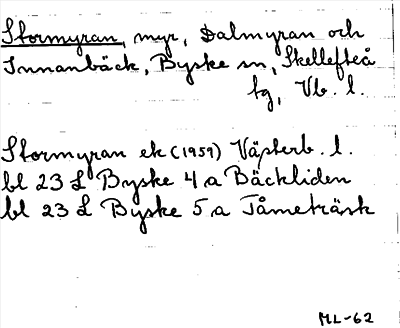 Stormyran, myr, Dalmyran och
Innanbäck, Byske sn, Skellefteå
tg, Vb. l.
Stormyran ek (1959) Västerb. l.
bl 23 L Byske 4 a Bäckliden
bl 23 L Byske 5 a Tåmeträsk
ML-62